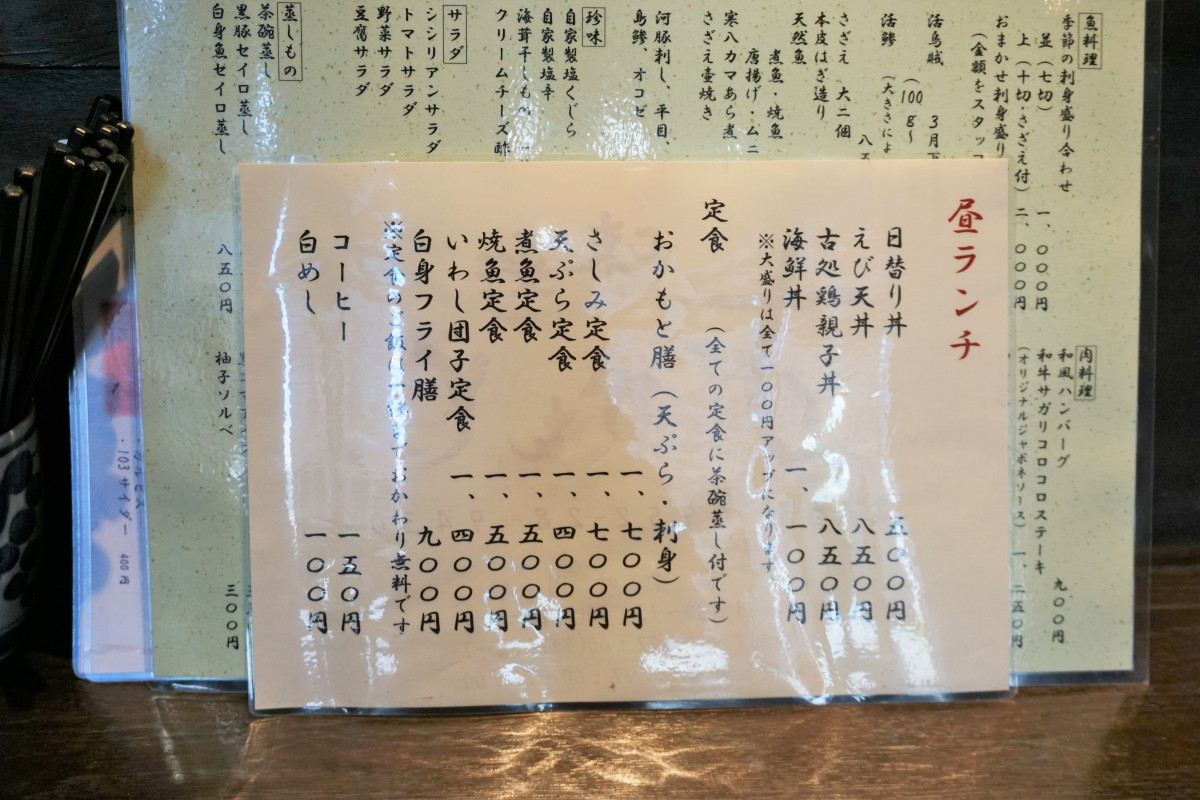 昼ランチ
日替り丼 五〇〇円
えび天丼 八五〇円
古処鶏親子丼 八五〇円
海鮮丼 一、一〇〇円
※大盛りは全て一〇〇円アップになります
定食 (全ての定食に茶碗蒸し付です)
おかもと膳(天ぷら・刺身) 一、七〇〇円
さしみ定食 一、七〇〇円
天ぷら定食 一、四〇〇円
煮魚定食 一、五〇〇円
焼魚定食 一、五〇〇円
いわし団子定食 一、四〇〇円
白身フライ膳 九〇〇円
※定食のご飯は一膳までおかわり無料です
コーヒー 一五〇円
白めし 一〇〇円
魚料理
季節の刺身盛り合わせ
並(七切) 一、〇〇〇円
上(十切・さざえ付) 二、〇〇〇円
おまかせ刺身盛り
(金額をスタッフ
活烏賊 3月下
(100g〜
活鯵 (大きさによ
さざえ 大二個 八五
本皮はぎ造り
天然魚
煮魚・焼魚
唐揚げ・ムニ
寒八カマあら煮
さざえ壷焼き
河豚刺し、平目、
島鯵、オコゼ
珍味
自家製塩くじら
自家製塩辛
海茸干しもの
クリームチーズ酢
サラダ
シシリアンサラダ
トマトサラダ
野菜サラダ
豆腐サラダ
蒸しもの
茶碗蒸し
黒豚セイロ蒸し
白身魚セイロ蒸し 八五〇円
肉料理
和風ハンバーグ 九〇〇円
和牛サガリコロコロステーキ
(オリジナルジャポネソース) 一、二五〇円
柚子ソルベ 三〇〇円
・103サイダー 400円